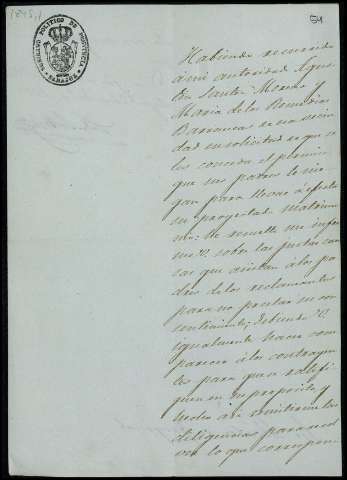 GOBIERNO POLITICO DE PROVINCIA
BADAJOZ
54
Habiendo recurrido
á mi autoridad Agus
tin Santos Moreno y
Maria de los Remedios
Barrancas de esa vecin
dad en solicitud de que se
les conceda el permiso
que sus padres le nie
gan para llevar á efecto
su proyectado matrimo
nio: me informe
V. sobre las justas cau
sas que asistan á los pa
dres de los reclamantes
para no prestar su con
sentimiento; debiendo V.
igualmente hacer com
parecer á los contrayen
tes para que se ratifi
quen en su proposito, y
hecho asi remitirme las
diligencias para resol
ver lo que correspon